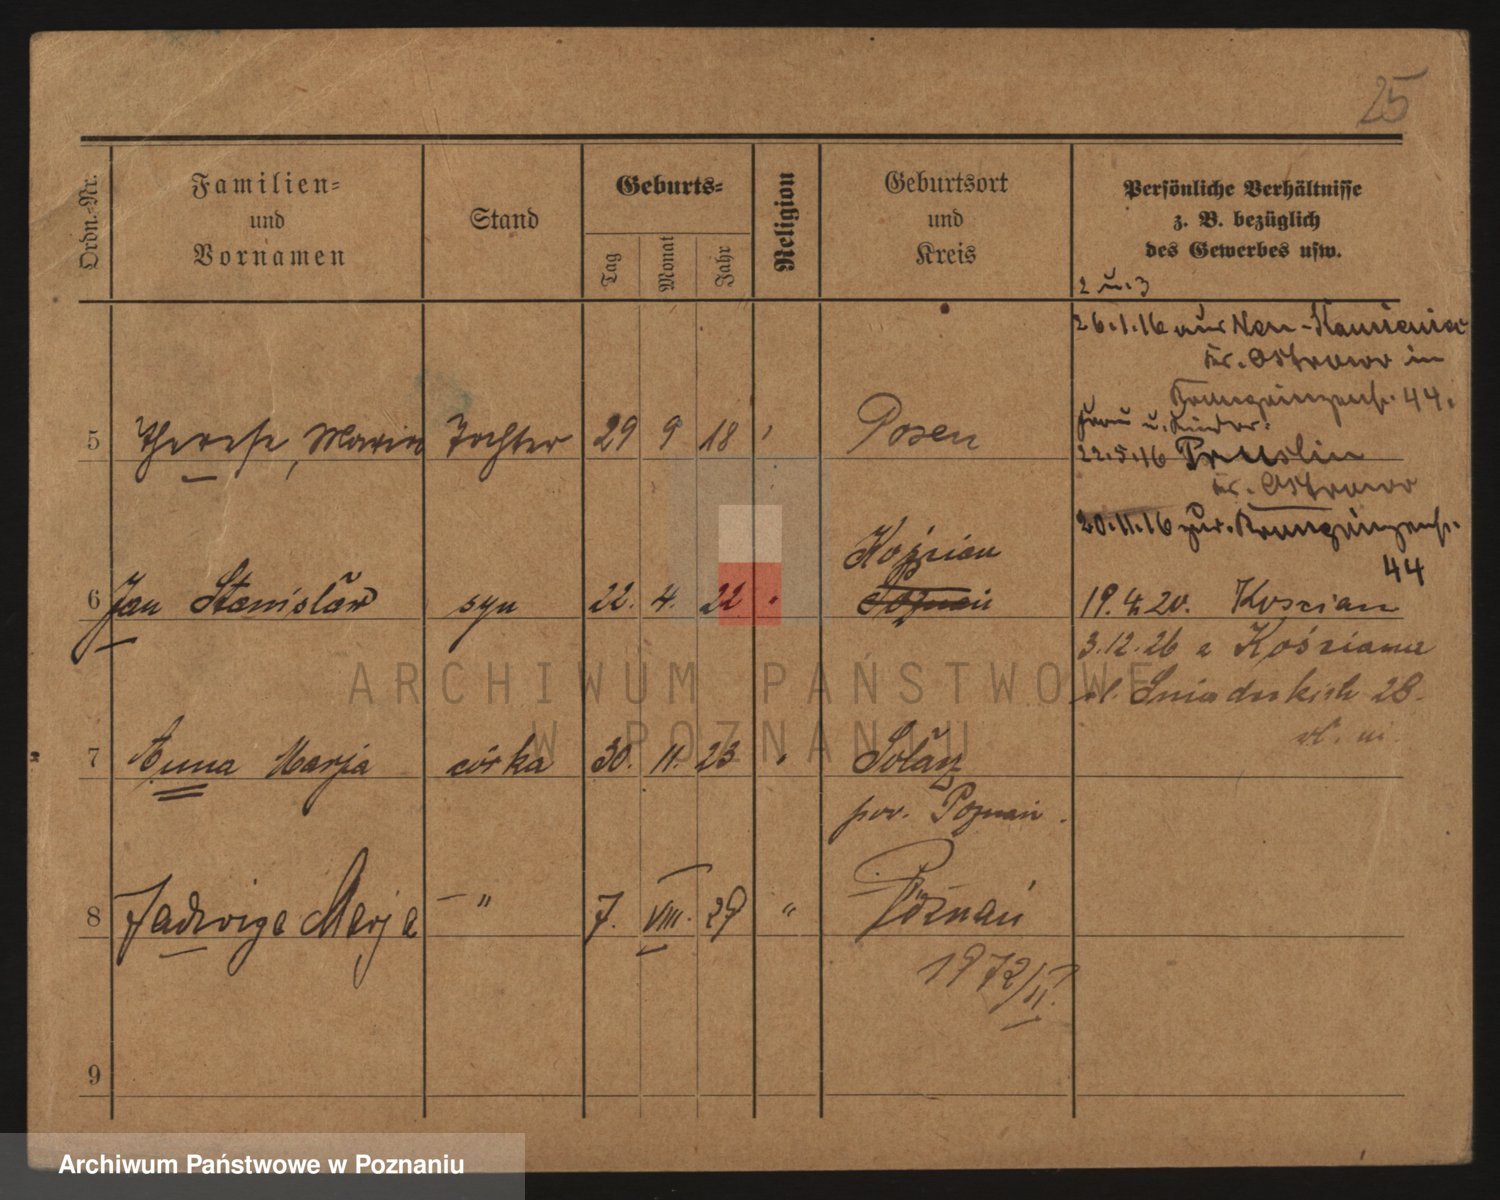 25
Ordn.=Nr.
Familien=
und
Vornamen
Stand
Geburts=
Tag
Monat
Jahr
Religion
Geburtsort
und
Kreis
Persönliche Verhältnisse
z. B. bezüglich
des Gewerbes usw.
2 u. 3
26.1.16 aus Neu-Kamienice
Kr. Ostrowo in
44.
5 Therese, Maria Tochter 29 9 18 Posen
Frau u. Kinder:
22.5.16 Pruslin
Kr. Ostrowo
20.11.16 zur.
44
Kościan
6 Jan Stanisław syn 22. 4. 22 Poznań
19.4.20. Koscian
3.12.26 z Kościana
ul. Śniadeckich 28.
ARCHIWUM PAŃSTWOWE
W POZNANIU
7 Anna Marja córka 30. 11. 23 Sołacz
pow. Poznań.
8 Jadwiga Marja — " 7. VIII. 29 " Poznań
9
Archiwum Państwowe w Poznaniu